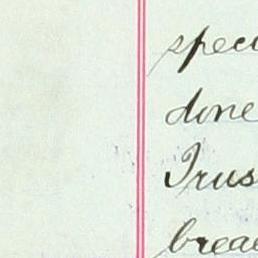 speci
done
Trus
breac